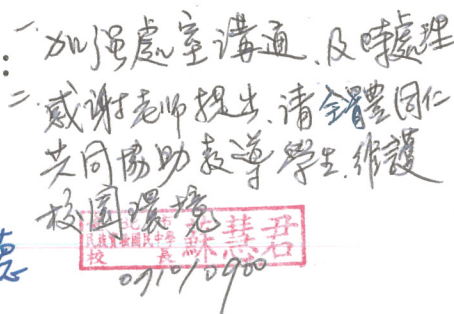 一、加強處室溝通、及時處理
二、感謝老師提出、請全體同仁
共同協助教導學生、維護
校園環境
民族實驗國民中學
校長 蘇慧君
0910/0900